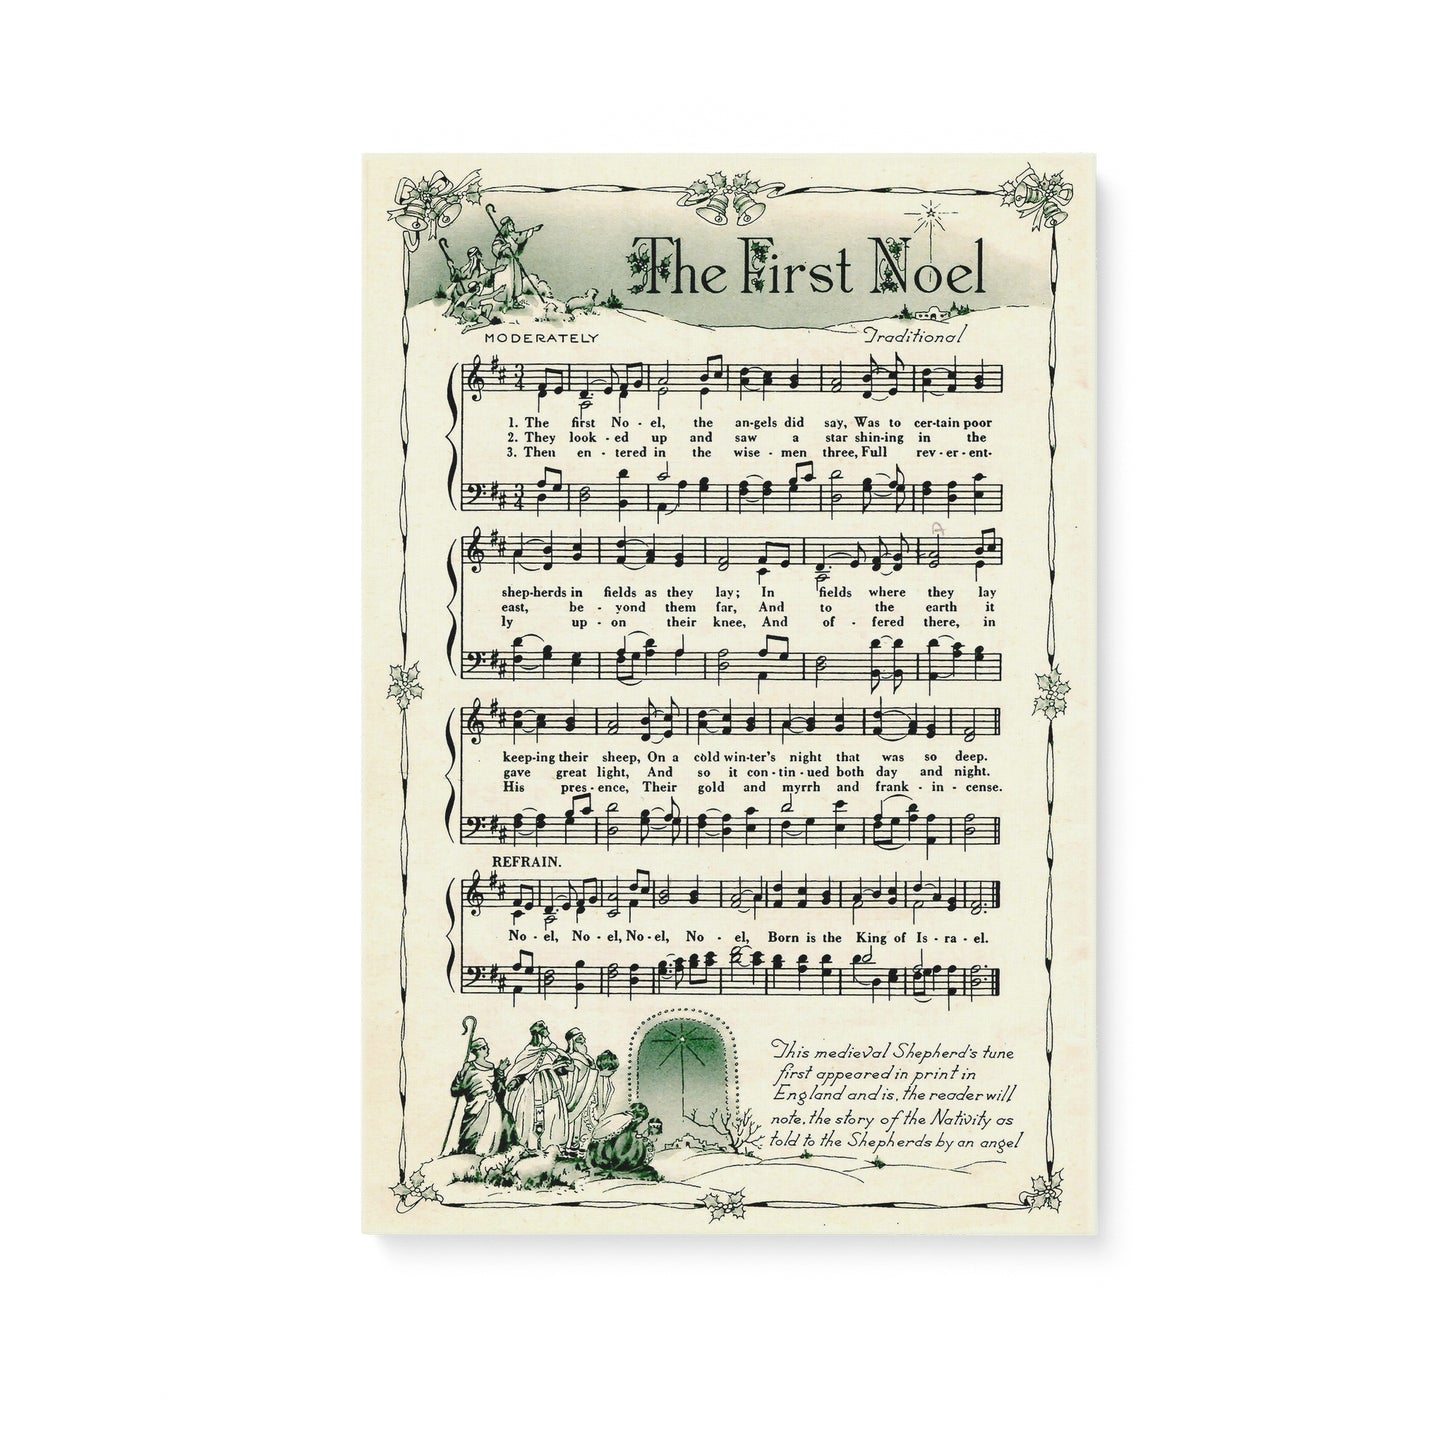 The First Noel
MODERATELY
Traditional
3
4
1. The first No - el, the an-gels did say, Was to cer-tain poor
2. They look - ed up and saw a star shin-ing in the
3. Then en - tered in the wise - men three, Full rev - er - ent-
3
4
A
shep-herds in fields as they lay; In fields where they lay
east, be - yond them far, And to the earth it
ly up - on their knee, And of - fered there, in
keep-ing their sheep, On a cold win-ter's night that was so deep.
gave great light, And so it con - tin - ued both day and night.
His pres - ence, Their gold and myrrh and frank - in - cense.
REFRAIN.
No - el, No - el, No-el, No - el, Born is the King of Is - ra - el.
This medieval Shepherd's tune
first appeared in print in
England and is, the reader will
note, the story of the Nativity as
told to the Shepherds by an angel